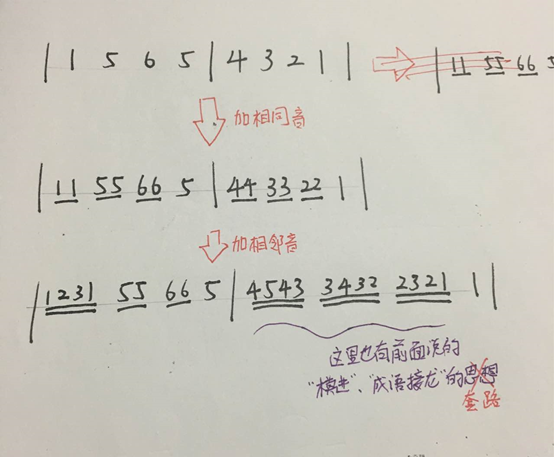 | 1 5 6 5 | 4 3 2 1 |
| 11 55 66 5
加相同音
| 11 55 66 5 | 44 33 22 1 |
加相邻音
| 1231 55 66 5 | 4543 3432 2321 1 |
这里也有前面谈的
"模进"、"成语接龙"的思想
套路